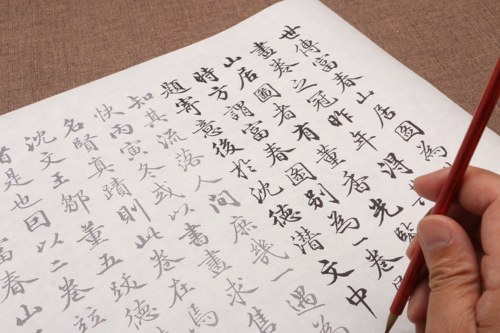 世傳富春山居圖為
畫卷之冠昨年得
山居圖者有董香光
時方謂富春圖別為一卷
題寄意後於沈德潛文中
知其流落人間庶幾一遇
快丙寅冬或以書畫求售
名賢真蹟則此卷在焉
沈文王鄒董五跋德
首是也曰以二卷竝
富春山